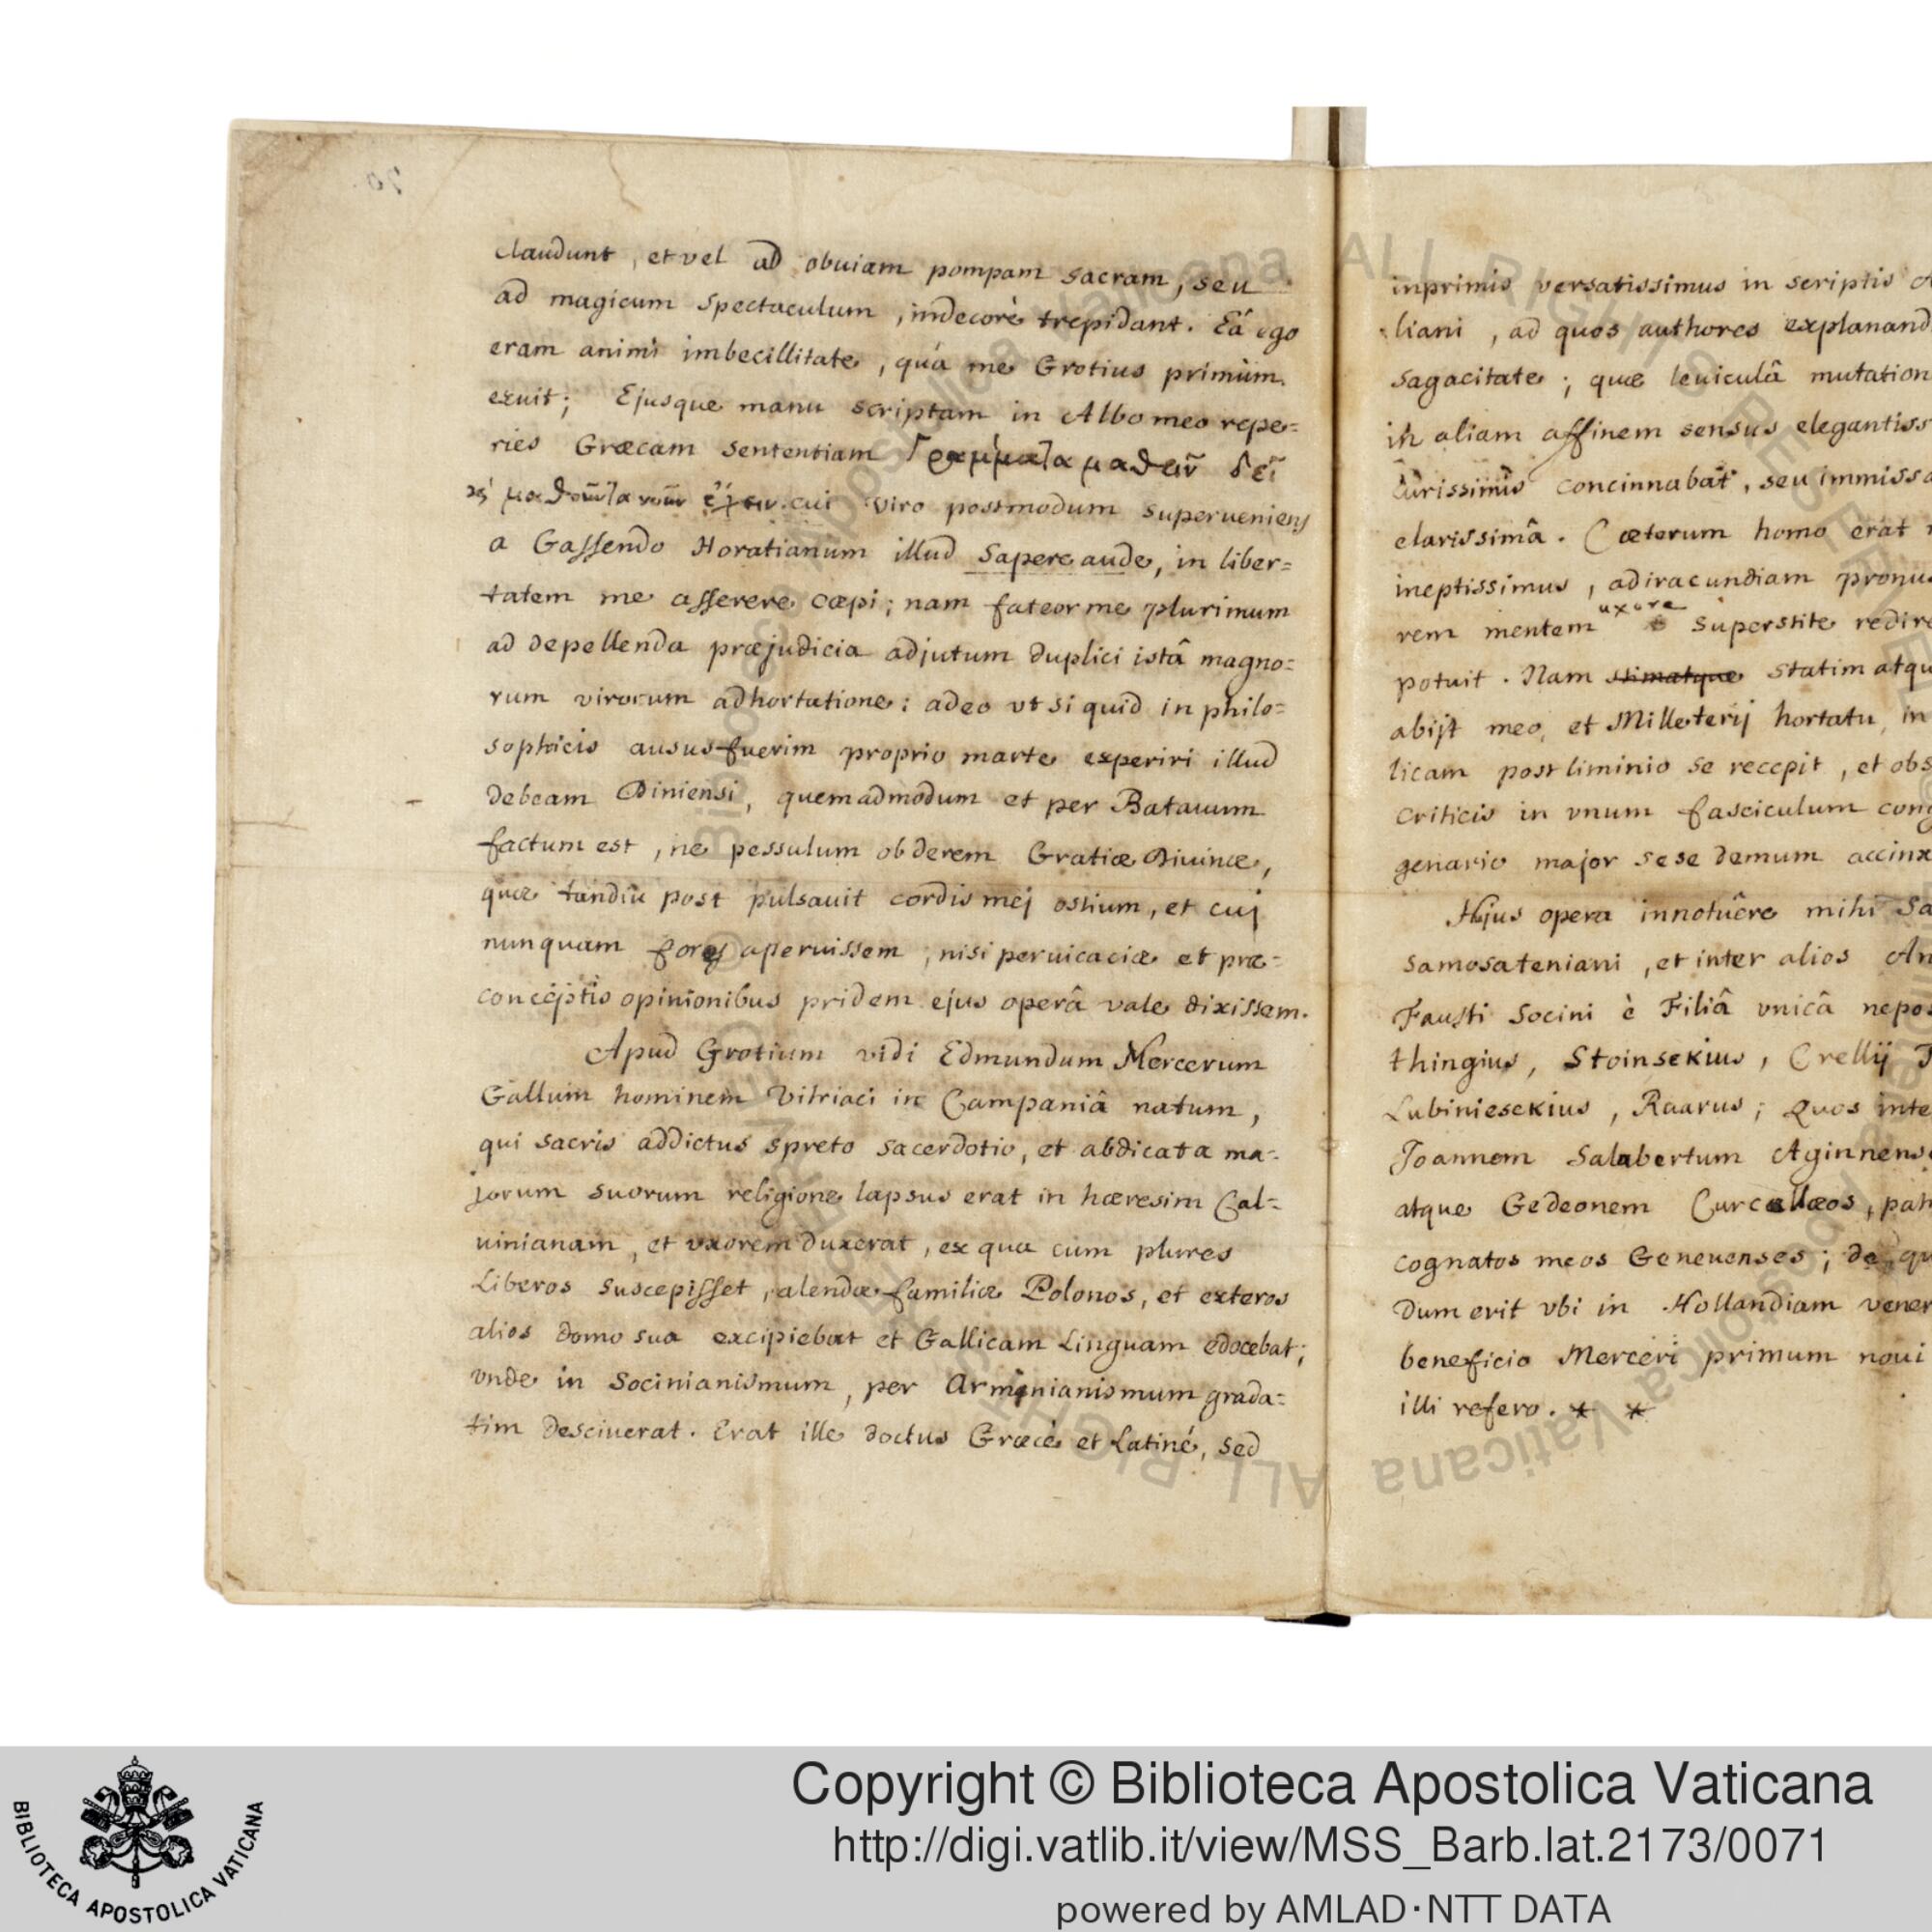 claudunt, et vel ad obuiam pompam sacram, seu
ad magicum spectaculum, indecorè trepidant. Eâ ego
eram animi imbecillitate, quâ me Grotius primùm
exuit; Ejusque manu scriptam in Albo meo repe=
ries Græcam sententiam Γράμματα μαθεῖν δεῖ
καὶ μαθόντα νοῦν ἔχειν. cui viro postmodum superueniens
a Gassendo Horatianum illud Sapere aude, in liber=
tatem me asserere cœpi; nam fateor me plurimum
ad depellenda præjudicia adjutum duplici istâ magno=
rum virorum adhortatione; adeo vt si quid in philo=
sophicis ausus fuerim proprio marte experiri illud
debeam Diniensi, quemadmodum et per Batauum
factum est, ne pessulum obderem Gratiæ Diuinæ,
quæ tandiu post pulsauit cordis mej ostium, et cuj
nunquam fores aperuissem, nisi peruicaciæ et præ=
conceptis opinionibus pridem ejus operâ vale dixissem.
Apud Grotium vidi Edmundum Mercerum
Gallum hominem Vitriaci in Campaniâ natum,
qui sacris addictus spreto sacerdotio, et abdicata ma=
jorum suorum religione lapsus erat in hæresim Cal=
uinianam, et vxorem duxerat, ex qua cum plures
Liberos suscepisset, alendæ familiæ Polonos, et exteros
alios domo sua excipiebat et Gallicam Linguam edocebat;
vnde in Socinianismum, per Arminianismum grada=
tim desciuerat. Erat ille doctus Græcè et Latinè, sed
inprimis versatissimus in scriptis
liani, ad quos authores explanand
sagacitate; quæ leuiculâ mutation
in aliam affinem sensus elegantiss
durissimis concinnabat, seu immissa
clarissimâ. Cæterum homo erat
ineptissimus, ad iracundiam pronus
rem mentem uxore superstite redire
potuit. Nam statim atqu
abijt meo, et Milleterij hortatu, in
licam postliminio se recepit, et obs
criticis in vnum fasciculum cong
genario major sese demum accinx
Hujus opera innotuêre mihi Sa
samosateniani, et inter alios An
Fausti Socini è Filiâ vnicâ nepos
thingius, Stoinsekius, Crellij
Lubiniesckius, Ruarus; Quos inte
Joannem Salabertum Aginnense
atque Gedeonem Curcellæos, pat
cognatos meos Geneuenses; de qu
dum erit vbi in Hollandiam vener
beneficio Merceri primum noui
illi refero. * *
Copyright © Biblioteca Apostolica Vaticana
http://digi.vatlib.it/view/MSS_Barb.lat.2173/0071
powered by AMLAD·NTT DATA
BIBLIOTECA APOSTOLICA VATICANA